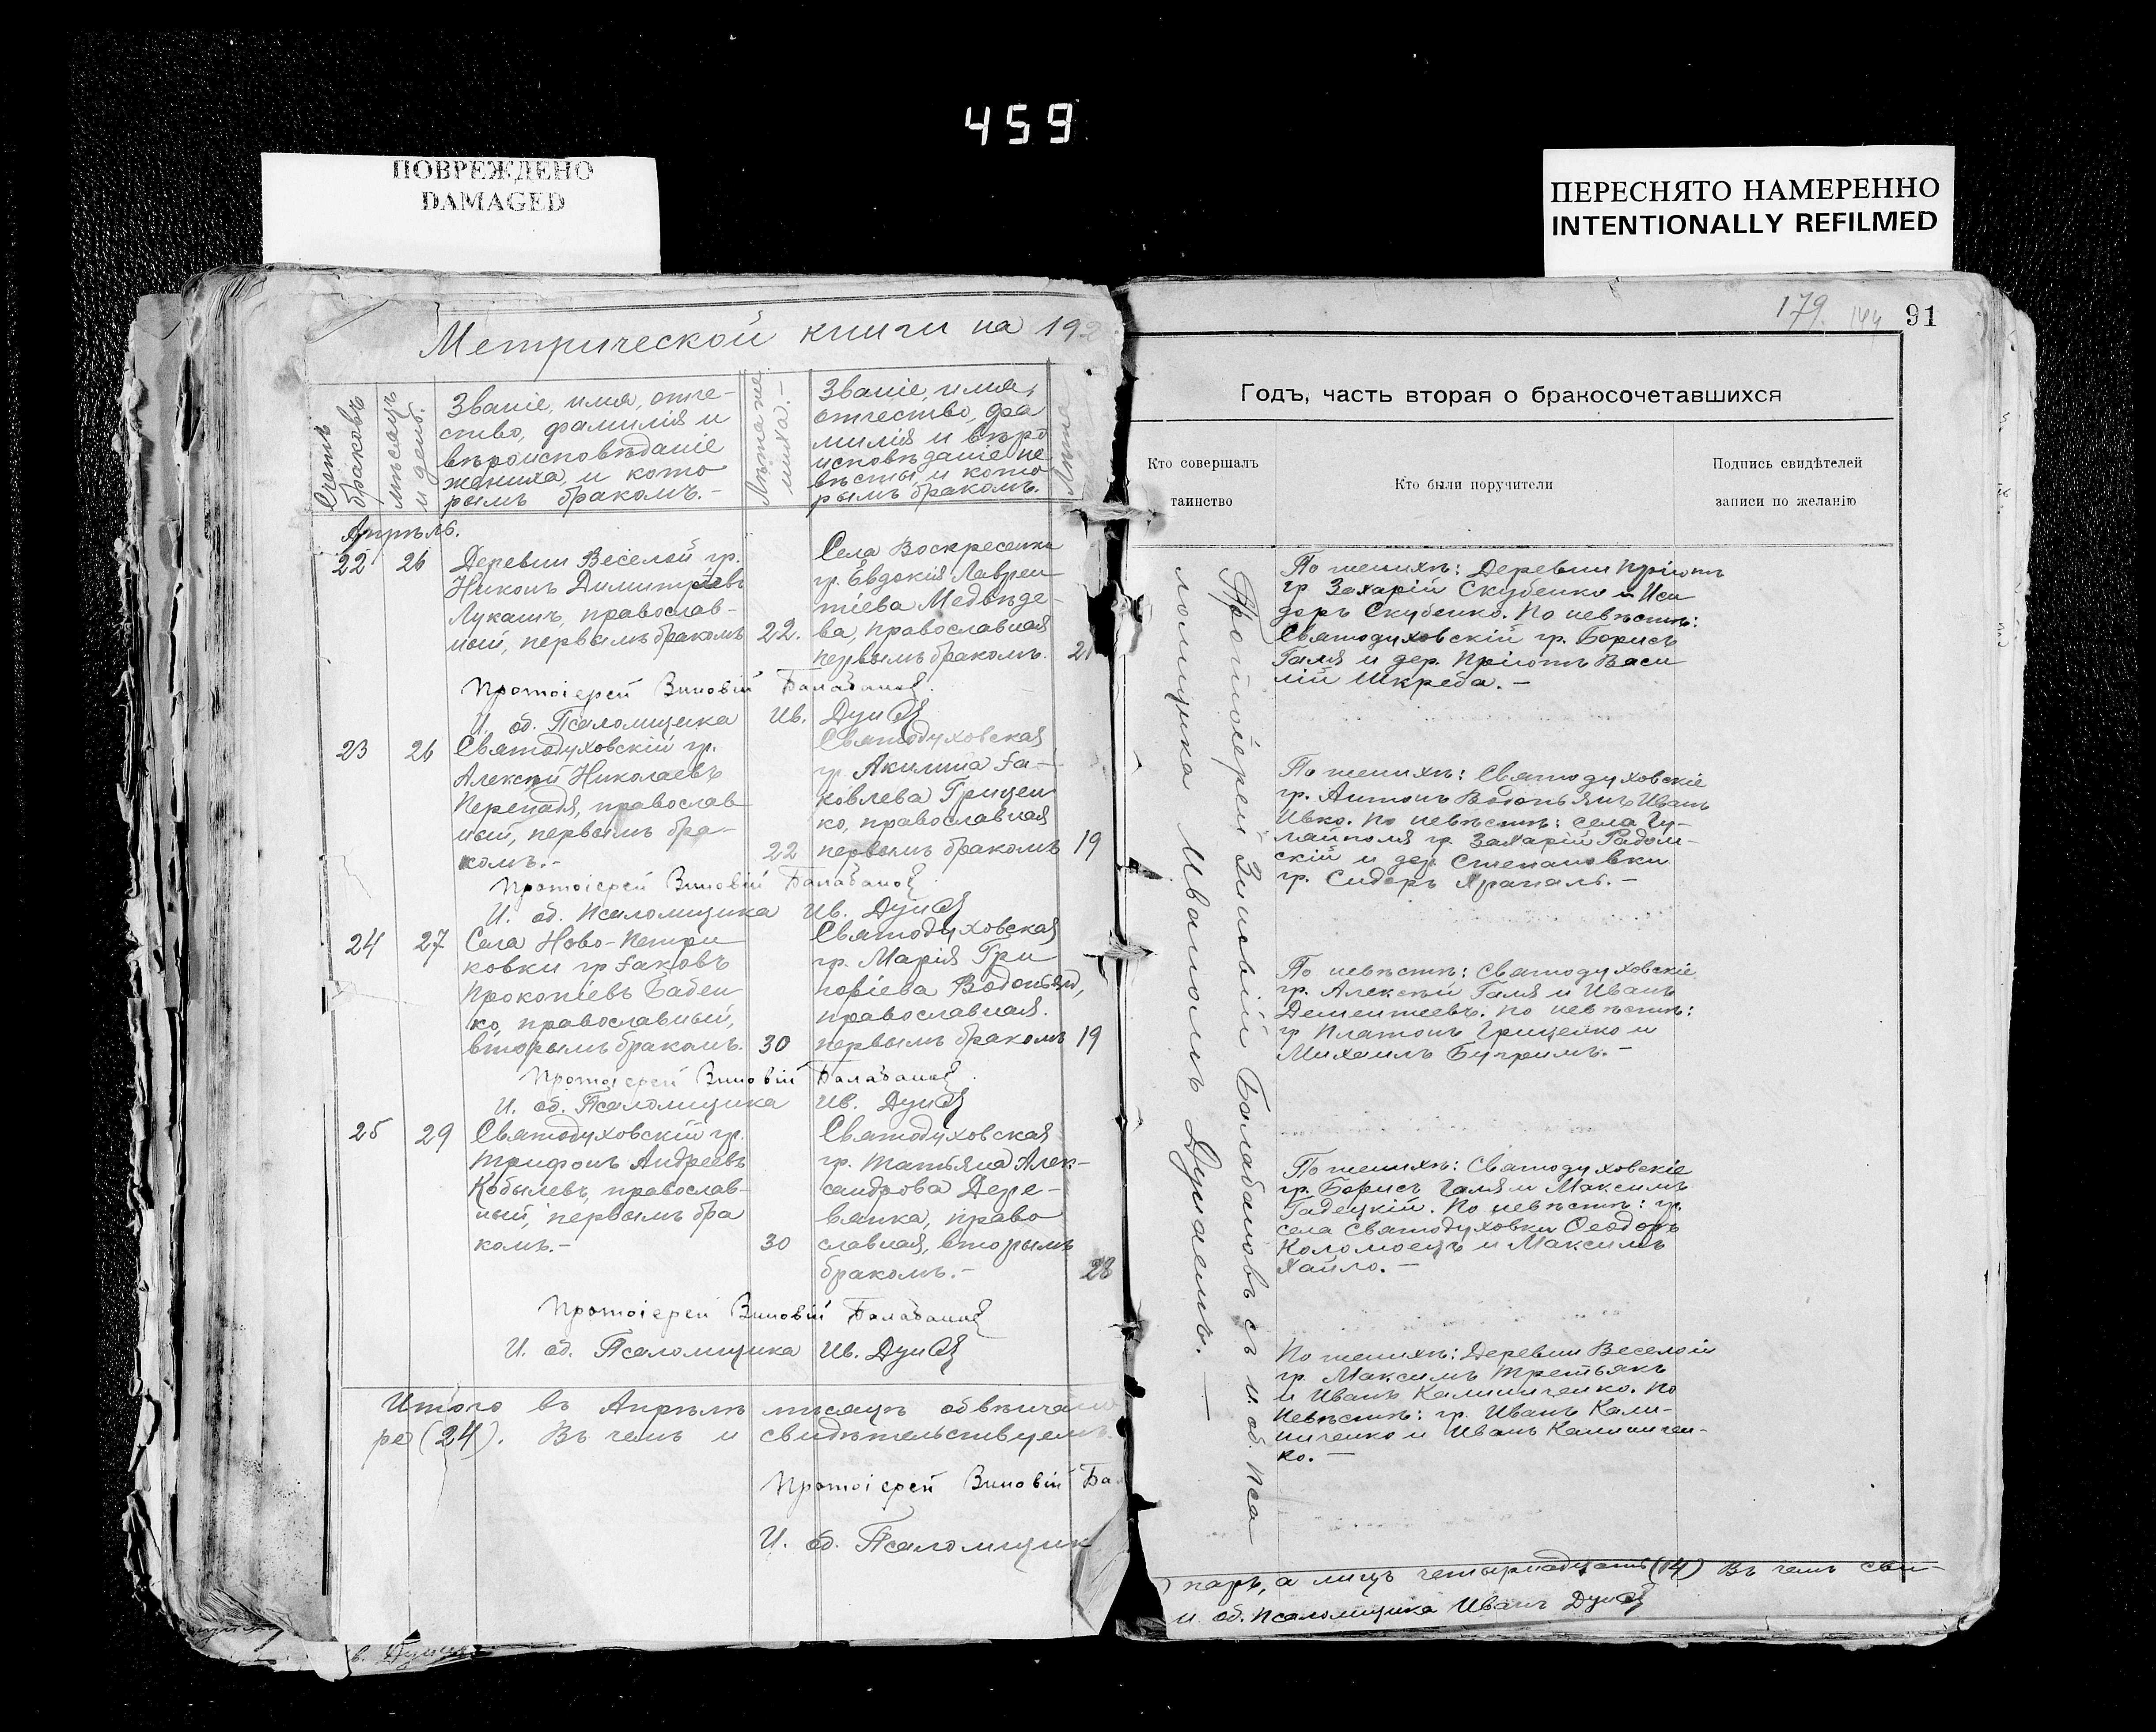 459
ПОВРЕЖДЕНО
DAMAGED
ПЕРЕСНЯТО НАМЕРЕННО
INTENTIONALLY REFILMED
Метрической книги на 192
Счетъ
браковъ
мѣсяцъ
и день.
Званіе, имя, отче-
ство, фамилія и
вѣроисповѣданіе
жениха, и кото
рымъ бракомъ.-
Лѣта же
ниха.-
Званіе, имя,
отчество, фа
милія и вѣро
исповѣданіе не
вѣсты, и кото
рымъ бракомъ.
Лѣта
Апрѣль.
22
26
Деревни Веселой гр.
Никонъ Димитріевъ
Лукашъ, православ-
ный, первымъ бракомъ
22.
Села Воскресенки
гр. Евдокія Лаврен
тіева Медвѣде-
ва, православная
первымъ бракомъ.
21
Протоіерей Зиновій Балабановъ.
И. об. Псаломщика Ив. Дунаев
23
26
Святодуховскій гр.
Алексѣй Николаевъ
Перепадя, православ
ный, первымъ бра-
комъ.-
22
Святодуховская
гр. Акилина Іа-
ковлева Грицен
ко, православная
первымъ бракомъ
19
Протоіерей Зиновій Балабановъ
И. об. Псаломщика Ив. Дунаев
24
27
Села Ново-Петри
ковки гр Іаковъ
Прокопіевъ Бабен
ко, православный,
вторымъ бракомъ.
30
Святодуховская
гр. Марія Гри
горіева Водопьян,
православная.
первымъ бракомъ
19
Протоіерей Зиновій Балабановъ.
И. об. Псаломщика Ив. Дунаев
25
29
Святодуховскій гр.
Трифонъ Андреевъ
Кобылевъ, православ-
ный, первымъ бра
комъ.-
30
Святодуховская
гр. Татьяна Алек-
сандрова Дере-
вянка, право
славная, вторымъ
бракомъ.-
28
Протоіерей Зиновій Балабановъ
И. об. Псаломщика Ив. Дунаев
Итого въ Апрѣлѣ мѣсяцѣ обвѣнчано
ре (24). Въ чемъ и свидѣтельствуемъ.
Протоіерей Зиновій Ба
И. об. Псаломщик
179
144
91
Годъ, часть вторая о бракосочетавшихся
Кто совершалъ
таинство
Кто были поручители
Подпись свидѣтелей
записи по желанію
Протоіерей Зиновій Балабановъ съ и. об. Пса
ломщика Иваномъ Дунаемъ. —
По женихѣ: Деревни Пріютъ
гр Захарій Скубенко и Иси
доръ Скубенко. По невѣстѣ:
Святодуховскій гр. Борисъ
Галя и дер. Пріютъ Васи
лій Шкреба.-
По женихѣ: Святодуховскіе
гр. Антонъ Водопьянъ Иванъ
Ивко. По невѣстѣ: села Гу-
ляйполя гр Захарій Радом-
скій и дер. Степановки
гр. Сидоръ Храпаль.-
По невѣстѣ: Святодуховскіе
гр. Алексѣй Галя и Иванъ
Дементеевъ. По невѣстѣ:
гр Платонъ Гриценко и
Михаилъ Бугримъ.-
По женихѣ: Святодуховскіе
гр. Борисъ Галя и Максимъ
Гадецкій. По невѣстѣ: гр.
села Святодуховки Ѳеодоръ
Коломоецъ и Максимъ
Хайло.-
По женихѣ: Деревни Веселой
гр. Максимъ Третьякъ
и Иванъ Калиниченко. По
невѣстѣ: гр. Иванъ Кали-
ниченко и Иванъ Калиничен-
ко.-
) паръ, а лицъ четырнадцать (14) Въ чемъ сви-
и. об. Псаломщика Иванъ Дунаев